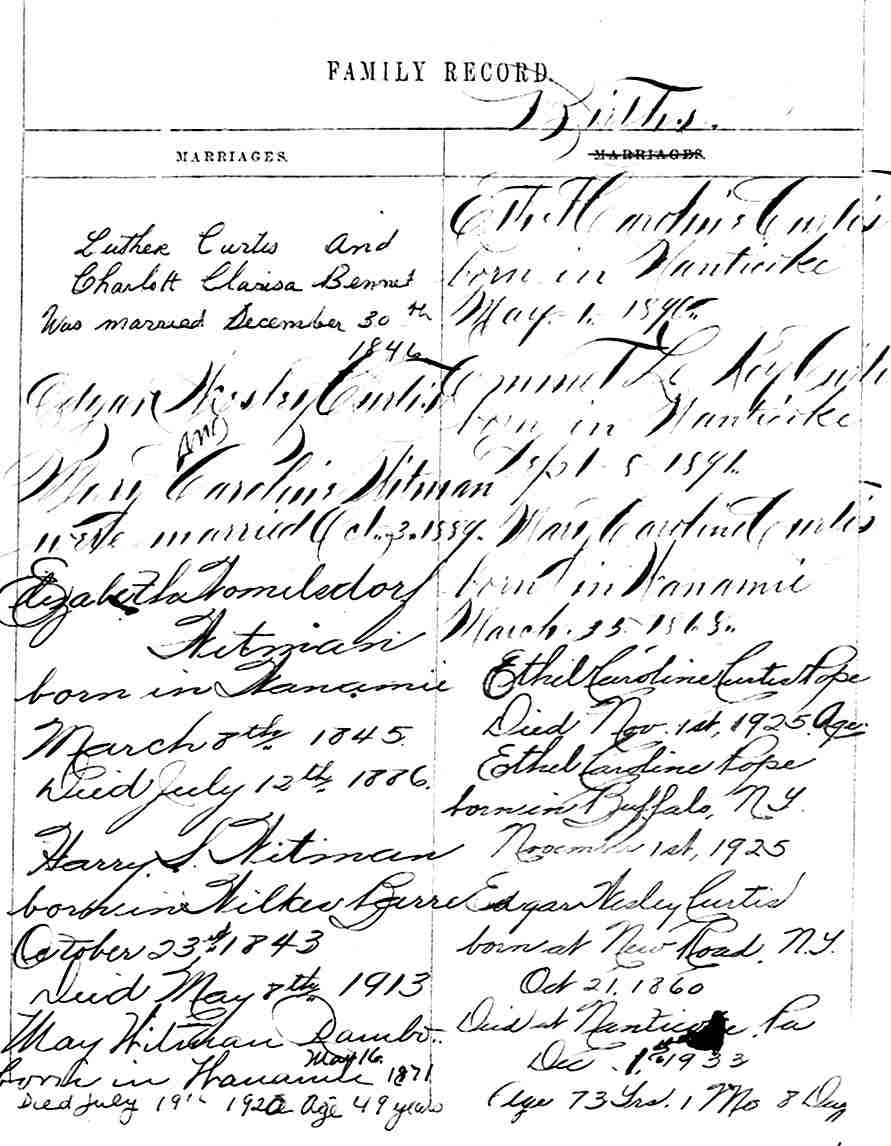 FAMILY RECORD
Births.
MARRIAGES.
Luther Curtis and
Charlott Clarisa Bennet
Was married December 30th
1846
Edgar Wesley Curtis
And
Mary Caroline Witman
were married Oct. 3. 1889.
Elizabeth Womelsdorf
Witman
born in Wanamie
March 8th 1845.
Died July 12th 1886.
Harry S. Witman
born in Wilkes Barre
October 23rd 1843
Died May 8th 1913
May Witman Rambo
May 16.
born in Wanamie 1871
Died July 19th 1920 Age 49 years
MARRIAGES.
Ethel Caroline Curtis
born in Nanticoke
May. 1. 1890.
Emmet Le Roy Curtis
born in Nanticoke
Sept. 5 1891.
Mary Caroline Curtis
born in Wanamie
March. 25
Ethel Caroline Curtis Pope
Died Nov. 1st, 1925. Age
Ethel Caroline Pope
born in Buffalo, N.Y.
November 1st, 1925
Edgar Wesley Curtis
born at New Road, N.Y.
Oct 21, 1860
Died at Nanticoke, Pa
Dec. 1933
Age 73 Yrs. 1 Mo 8 Day